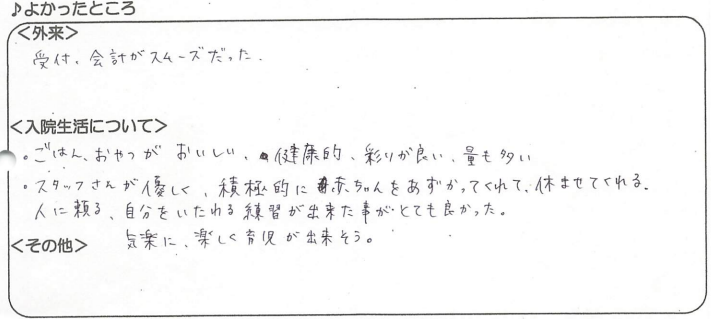 ♪よかったところ
＜外来＞
受付、会計がスムーズだった.
＜入院生活について＞
・ごはん、おやつが おいしい、健康的、彩りが良い、量も多い
・スタッフさんが優しく、積極的に赤ちゃんをあずかってくれて、休ませてくれる.
人に頼る、自分をいたわる練習が出来た事がとても良かった。
気楽に、楽しく育児が出来そう。
＜その他＞